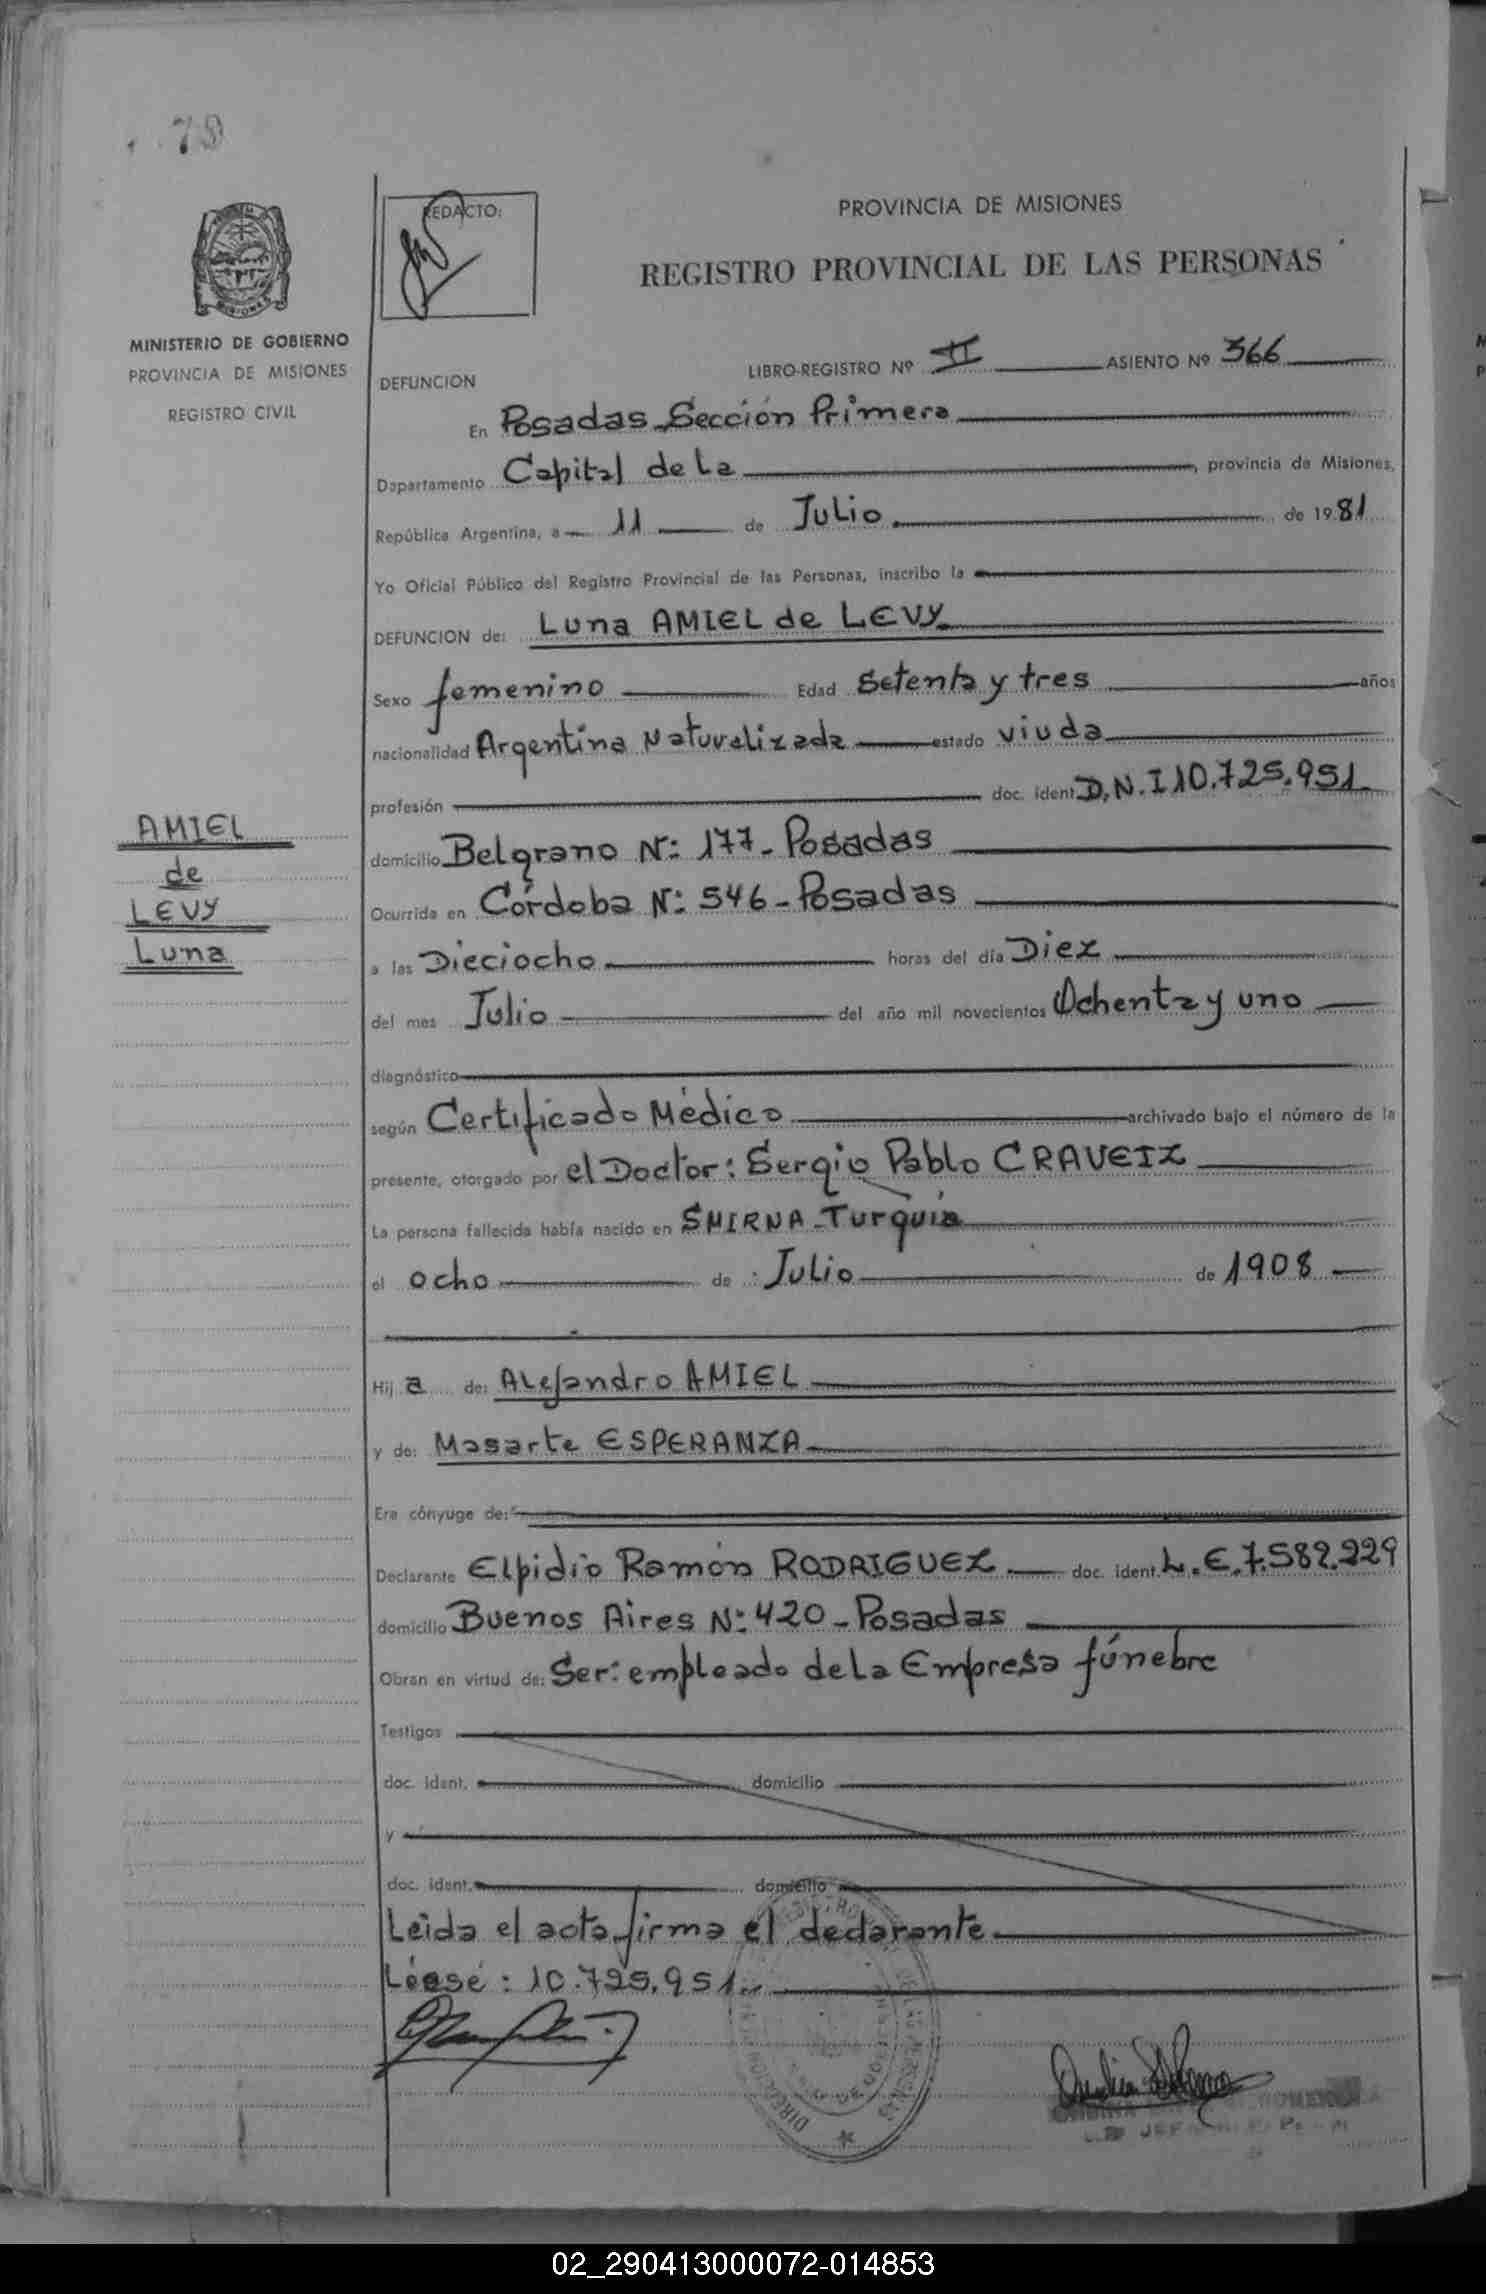 79
REDACTO:
PROVINCIA DE MISIONES
REGISTRO PROVINCIAL DE LAS PERSONAS
MISIONES
MINISTERIO DE GOBIERNO
PROVINCIA DE MISIONES
REGISTRO CIVIL
DEFUNCION
LIBRO-REGISTRO Nº II ASIENTO Nº 366
En Posadas-Sección Primera
Departamento Capital de La, provincia de Misiones,
República Argentina, a 11 de Julio de 1981
Yo Oficial Público del Registro Provincial de las Personas, inscribo la
DEFUNCION de: Luna AMIEL de LEVY
Sexo femenino Edad Setenta y tres años
nacionalidad Argentina Naturalizada estado viuda
profesión doc. ident. D.N.I 10.725.951
AMIEL
de
LEVY
Luna
domicilio Belgrano N:º 177-Posadas
Ocurrida en Córdoba N:º 546-Posadas
a las Dieciocho horas del día Diez
del mes Julio del año mil novecientos Ochenta y uno
diagnóstico
según Certificado Médico archivado bajo el número de la
presente, otorgado por el Doctor: Sergio Pablo CRAVEIZ
La persona fallecida había nacido en SMIRNA-Turquía
el ocho de Julio de 1908
Hij a de: Alejandro AMIEL
y de: Masarte ESPERANZA
Era cónyuge de:
Declarante Elpidio Ramón RODRIGUEZ. doc. ident. L.E.7.582.229
domicilio Buenos Aires N:º 420-Posadas
Obran en virtud de: Ser: empleado de la Empresa fúnebre
Testigos
doc. ident. domicilio
y
doc. ident. domicilio
Leida el acta firma el declarante
Léase: 10.725.951
02_290413000072-014853